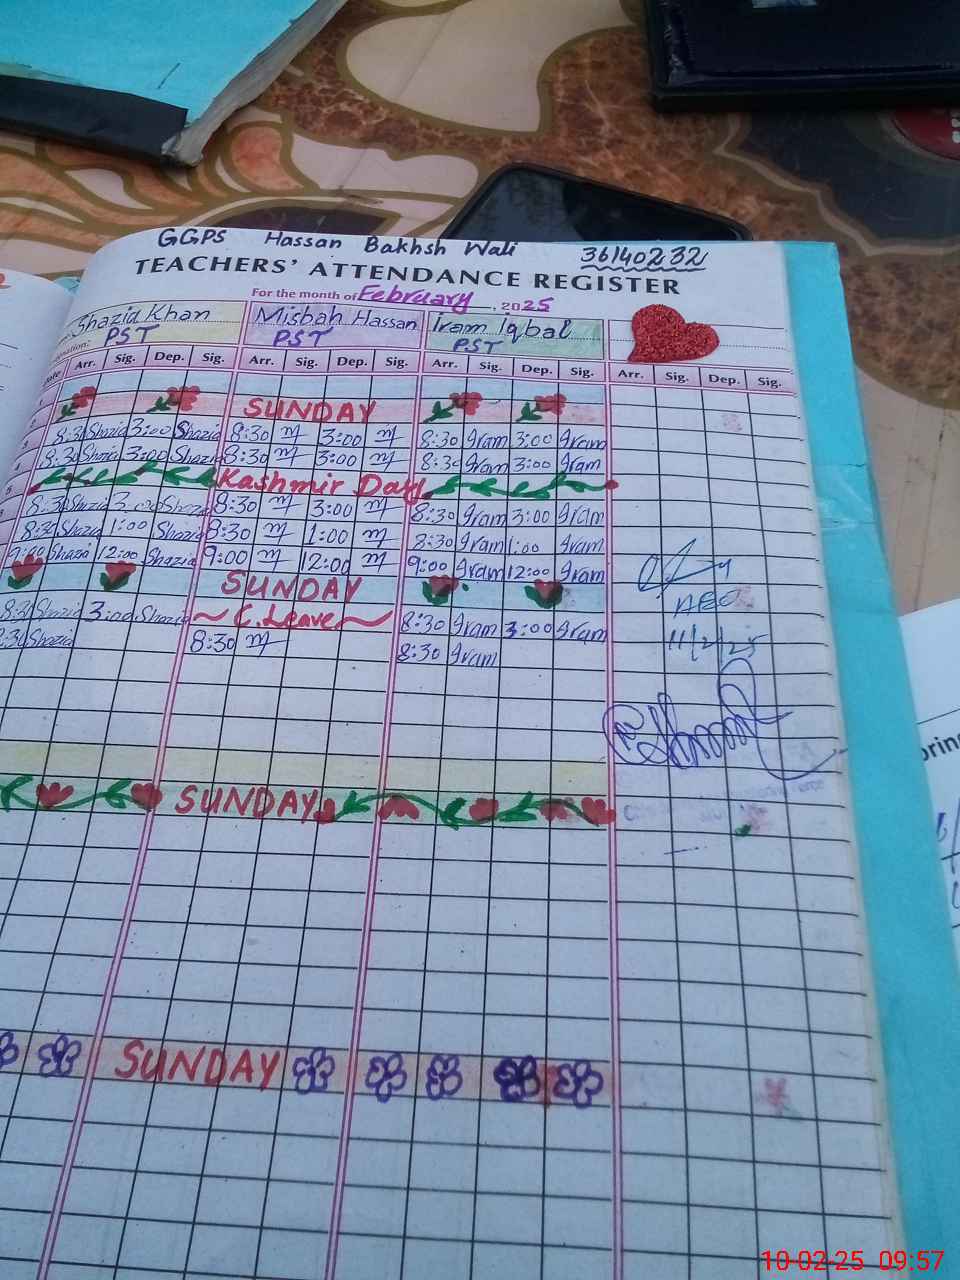 GGPS Hassan Bakhsh Wali 36140232
TEACHERS' ATTENDANCE REGISTER
For the month of February, 2025
Shazia Khan Misbah Hassan Iram Iqbal
PST PST PST
Arr. Sig. Dep. Sig. Arr. Sig. Dep. Sig. Arr. Sig. Dep. Sig. Arr. Sig. Dep. Sig.
SUNDAY
8:30 Shazia 3:00 Shazia 8:30 m 3:00 m 8:30 Iram 3:00 Iram
8:30 Shazia 3:00 Shazia 8:30 m 3:00 m 8:30 Iram 3:00 Iram
Kashmir Day
8:30 Shazia 3:00 Shazia 8:30 m 3:00 m 8:30 Iram 3:00 Iram
8:30 Shazia 1:00 Shazia 8:30 m 1:00 m 8:30 Iram 1:00 Iram
9:00 Shazia 12:00 Shazia 9:00 m 12:00 m 9:00 Iram 12:00 Iram
SUNDAY
8:30 Shazia 3:00 Shazia ~ C.Leave ~ 8:30 Iram 3:00 Iram
8:30 Shazia 8:30 m 8:30 Iram
AEO
11/2/25
SUNDAY
SUNDAY
10-02-25 09:57